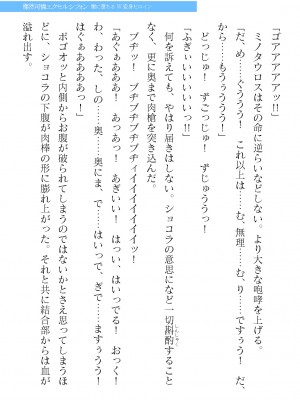 「ゴアアアアアッ!!」
ミノタウロスはその命に逆らいなどしない。より大きな咆哮を上げる。
「だ、め……ぐううう！　これ以上は……む、無理……む、り……ですぅう！　だ、
から……もぅぅううう！」
どっじゅ！　ずごっじゅ！　ずじゅううっ！
「ふぎぃいいいいいっ!!」
何を訴えても、やはり届きはしない。ショコラの意思になど一切斟酌すること
なく、更に奥まで肉槍を突き込んだ。
ブヂッ！　ブヂブヂブヂィイイイイイイッ！
「あぐぁああ！　あっあっ！　あぎいい！　はっい、はいっでる！　おっく！
わ、わった、しの……奥……奥にま、で……はいっで、ぎで……ますぅううう！
はぐぁああああっ！」
ボゴオッと内側からお腹が破られてしまうのではないかとさえ思ってしまうほ
どに、ショコラの下腹が肉棒の形に膨れ上がった。それと共に結合部からは血が
溢れ出す。